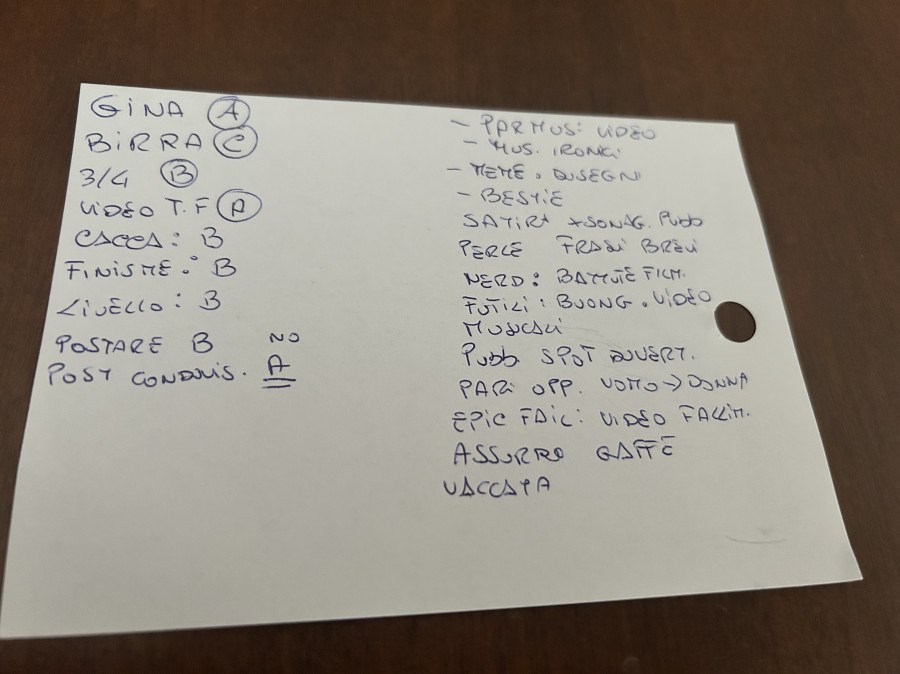 GINA A
BIRRA C
3/4 B
VIDEO T.F A
CACCA: B
FINISME: B
LIVELLO: B
POSTARE B NO
POST CONDIVIS. A
- PAR MUS: VIDEO
- MUS. IRONICI
- MEME. DISEGNI
- BESTIE
SATIRA PUBB
PERLE FRASI BREVI
NERD: BATTUTE FILM.
FUTILI: BUONG. VIDEO
MUSICALI
PUBB SPOT DIVERT.
PARI OPP. UOMO → DONNA
EPIC FAIL: VIDEO FALLIM.
ASSURRO GAFFE
VACCATA